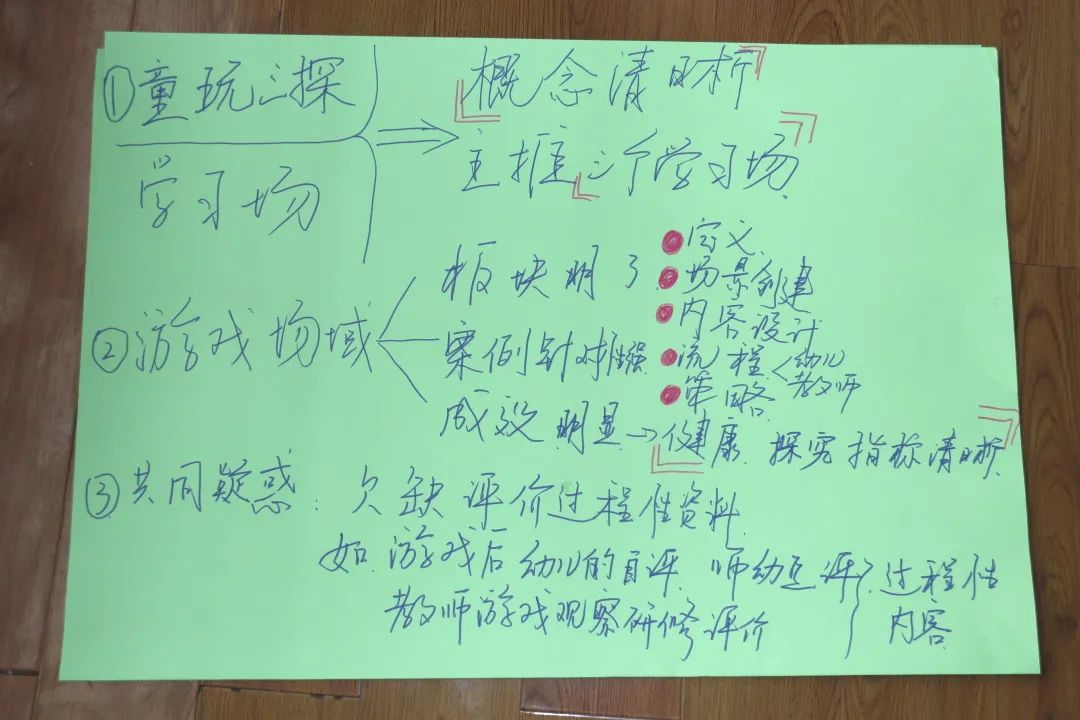 ①童玩三探
学习场
概念清晰
主推三个学习场
②游戏场域
板块明了
定义
场景创建
内容设计
案例针对性强
流程
幼儿
教师
策略
成效明显→健康、探究指标清晰
③共同疑惑：欠缺评价过程性资料
如游戏后幼儿的自评、师幼互评
教师游戏观察研修评价
过程性
内容